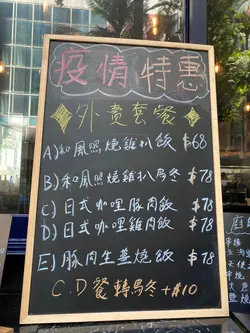 疫情特惠
外賣套餐
A)和風照燒雞扒飯 $68
B)和風照燒雞扒烏冬 $78
C)日式咖哩豚肉飯 $78
D)日式咖哩雞肉飯 $78
E)豚肉生薑燒飯 $78
C.D餐轉烏冬+$10